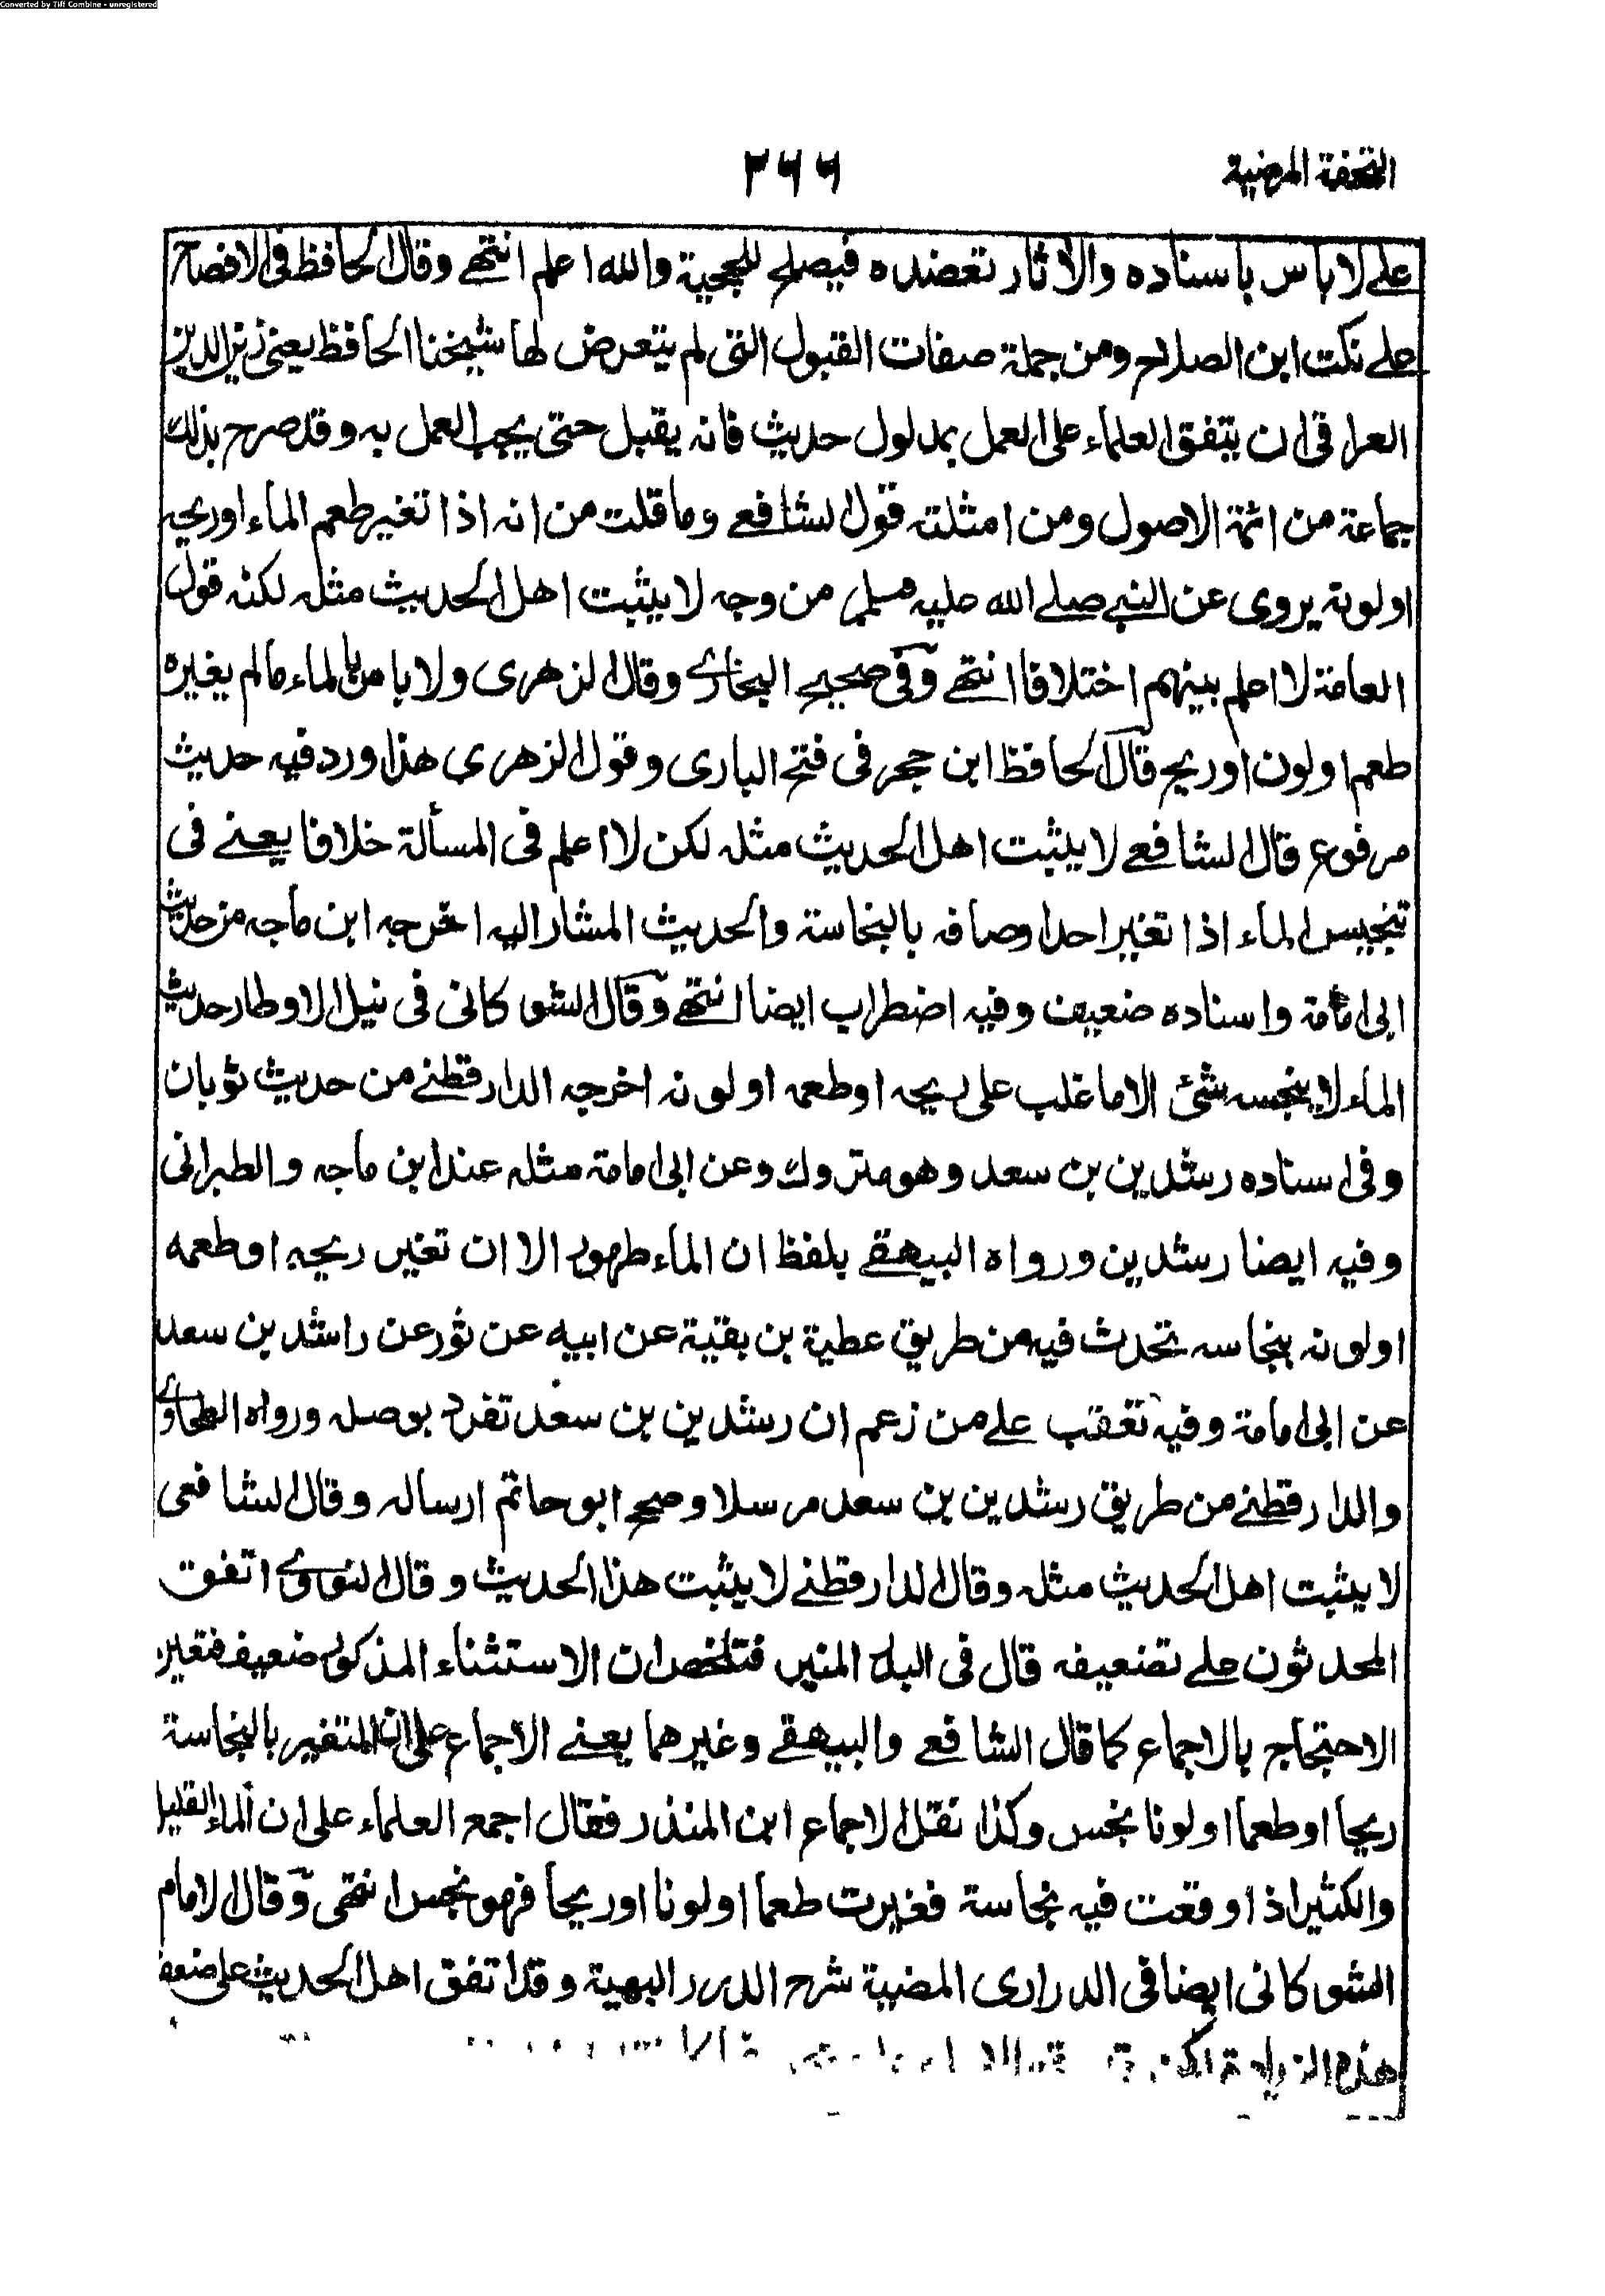 Converted by Tiff Combine - unregistered
التحفة المرضية
۲۶۶
على لا باس باسناده والآثار تعضده فيصلح للحجية والله اعلم انتهى وقال الحافظ فى الافصاح
على نكت ابن الصلاح ومن جملة صفات القبول التى لم يتعرض لها شيخنا الحافظ يعنى زين الدين
العراقى ان يتفق العلماء على العمل بمدلول حديث فانه يقبل حتى يجب العمل به وقد صرح بذلك
جماعة من ائمة الاصول ومن امثلته قول الشافعى وما قلت من انه اذا تغير طعم الماء او ريحه
او لونه يروى عن النبى صلى الله عليه وسلم من وجه لا يثبت اهل الحديث مثله لكنه قول
العامة لا اعلم بينهم اختلافا انتهى وفى صحيح البخارى وقال الزهرى ولا باس بالماء مالم يغيره
طعم او لون او ريح قال الحافظ ابن حجر فى فتح البارى وقول الزهرى هذا ورد فيه حديث
مرفوع قال الشافعى لا يثبت اهل الحديث مثله لكن لا اعلم فى المسألة خلافا يعنى فى
تنجيس الماء اذا تغير احد اوصافه بالنجاسة والحديث المشار اليه اخرجه ابن ماجه من حديث
ابى امامة واسناده ضعيف وفيه اضطراب ايضا انتهى وقال الشوكانى فى نيل الاوطار حديث
الماء لا ينجسه شئ الا ما غلب على ريحه او طعمه او لونه اخرجه الدارقطنى من حديث ثوبان
وفى اسناده رشدين بن سعد وهو متروك وعن ابى امامة مثله عند ابن ماجه والطبرانى
وفيه ايضا رشدين ورواه البيهقى بلفظ ان الماء طهور الا ان تغير ريحه او طعمه
او لونه بنجاسه تحدث فيه من طريق عطية بن بقية عن ابيه عن ثور عن راشد بن سعد
عن ابى امامة وفيه تعقب على من زعم ان رشدين بن سعد تفرد بوصله ورواه الطحاوى
والدارقطنى من طريق رشدين بن سعد مرسلا وصحح ابو حاتم ارساله وقال الشافعى
لا يثبت اهل الحديث مثله وقال الدارقطنى لا يثبت هذا الحديث وقال النووى اتفق
المحدثون على تضعيفه قال فى البدر المنير فتلخص ان الاستثناء المذكور ضعيف فتعين
الاحتجاج بالاجماع كما قال الشافعى والبيهقى وغيرهما يعنى الاجماع على ان المتغير بالنجاسة
ريحا او طعما او لونا نجس وكذا نقل الاجماع ابن المنذر فقال اجمع العلماء على ان الماء القليل
والكثير اذا وقعت فيه نجاسة فغيرت طعما او لونا او ريحا فهو نجس انتهى وقال الامام
الشوكانى ايضا فى الدرارى المضية شرح الدرر البهية وقد اتفق اهل الحديث على ضعف
هذه الزيادة لكنه